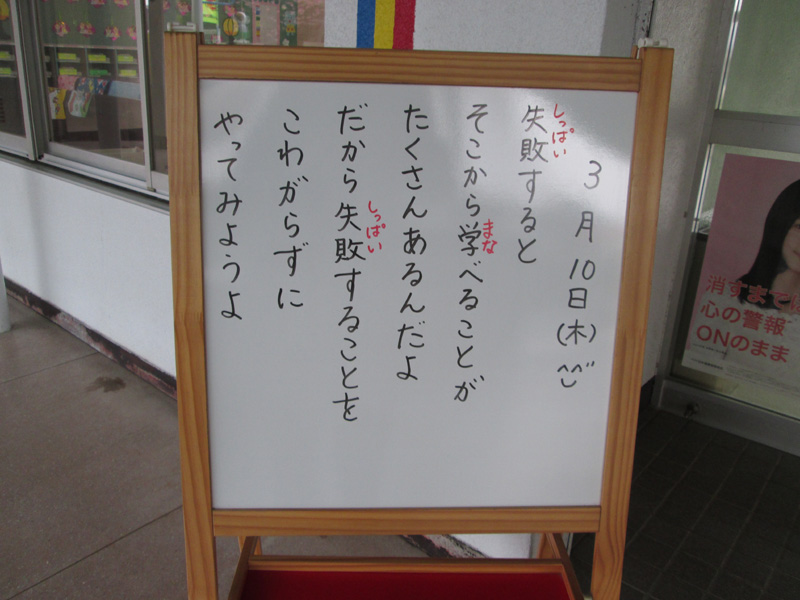 3月10日(木)^^
失敗すると
しっぱい
そこから学べることが
まな
たくさんあるんだよ
だから失敗することを
しっぱい
こわがらずに
やってみようよ
消すまでは
心の警報
ONのまま